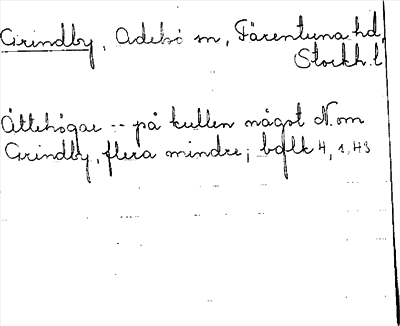 Grindby, Adelsö sn, Färentuna hd,
Stockh. l
Ättehögar -- på kullen något N. om
Grindby, flera mindre; bqlk 4, 1, 43